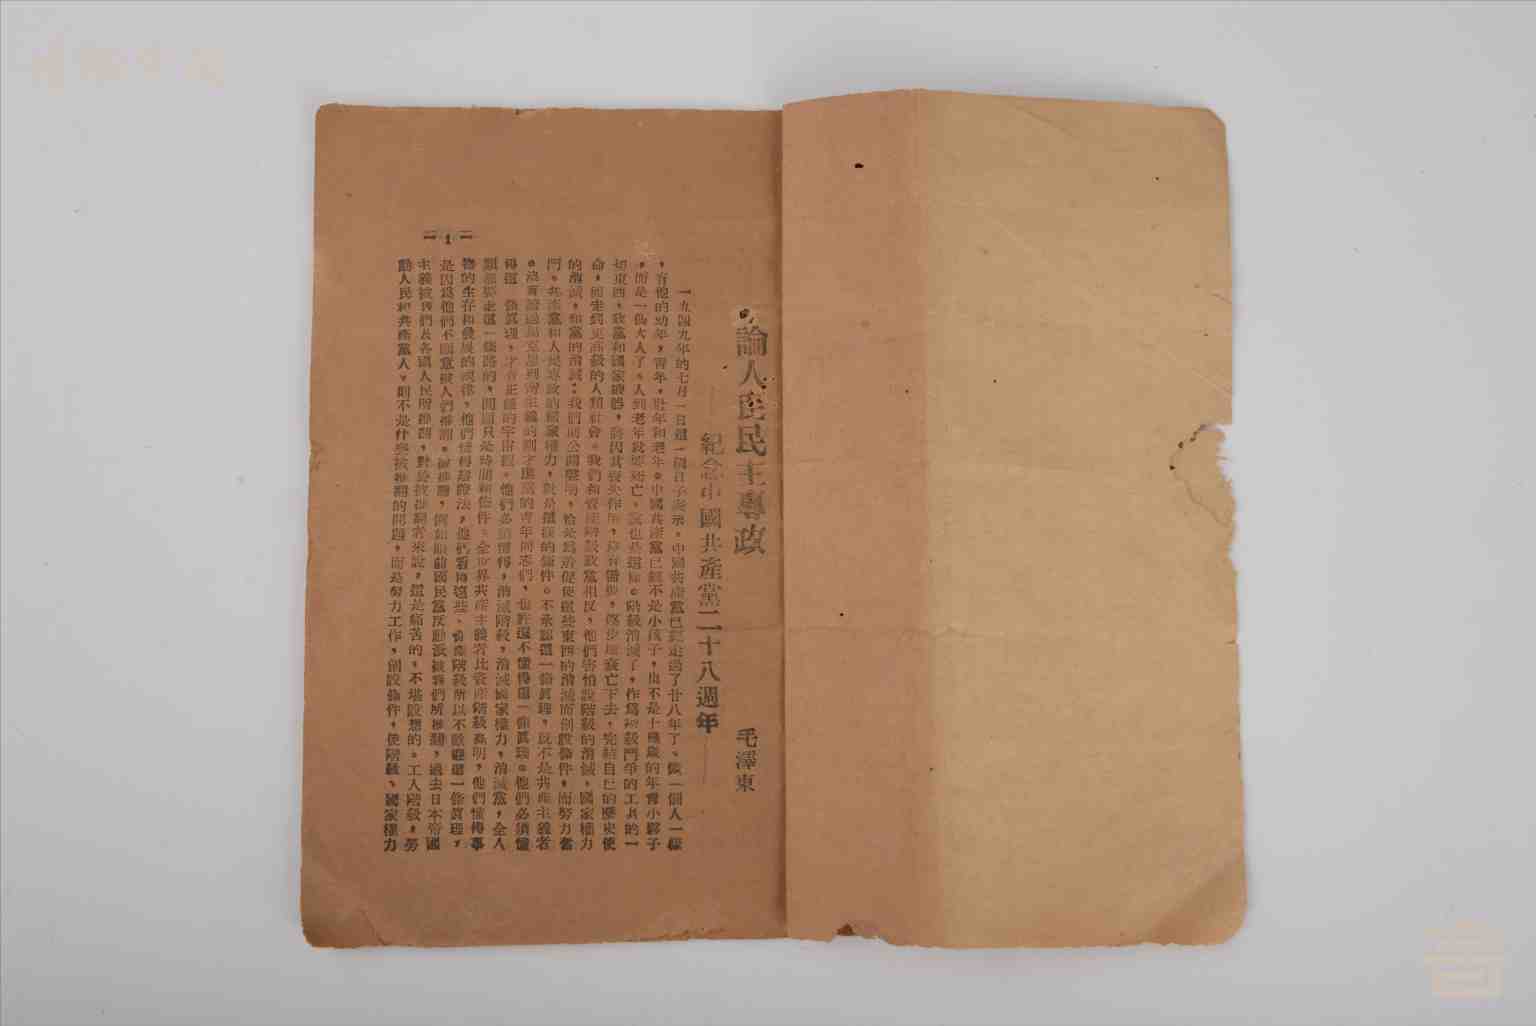 論人民民主專政
紀念中國共產黨二十八週年
毛澤東
一九四九年的七月一日這一個日子表示，中國共產黨已經走過了廿八年了。像一個人一樣
，有他的幼年，青年，壯年和老年。中國共產黨已經不是小孩子，也不是十幾歲的年青小夥子
，而是一個大人了。人到老年就要死亡，黨也是這樣。階級消滅了，作爲階級鬥爭的工具的一
切東西，政黨和國家機器，將因其喪失作用，沒有需要，逐步地衰亡下去，完結自己的歷史使
命，而走到更高級的人類社會。我們和資產階級政黨相反，他們害怕說階級的消滅，國家權力
的消滅，和黨的消滅；我們則公開聲明，恰是爲着促使這些東西的消滅而創設條件，而努力奮
鬥。共產黨和人民專政的國家權力，就是這樣的條件。不承認這一條眞理，就不是共產主義者
。沒有讀過馬克思列寧主義的剛才進黨的青年同志們，也許還不懂得這一條眞理。他們必須懂
得這一條眞理，才有正確的宇宙觀。他們必須懂得，消滅階級，消滅國家權力，消滅黨，全人
類都要走這一條路的，問題只是時間和條件。全世界共產主義者比資產階級高明，他們懂得事
物的生存和發展的規律，他們懂得辯證法，他們看得遠些。資產階級所以不歡迎這一條眞理，
是因爲他們不願意被人們推翻。被推翻，例如眼前國民黨反動派被我們所推翻，過去日本帝國
主義被我們及各國人民所推翻，對於被推翻者來說，這是痛苦的，不堪設想的。工人階級，勞
動人民和共產黨人，則不是什麼被推翻的問題，而是努力工作，創設條件，使階級、國家權力
—1—